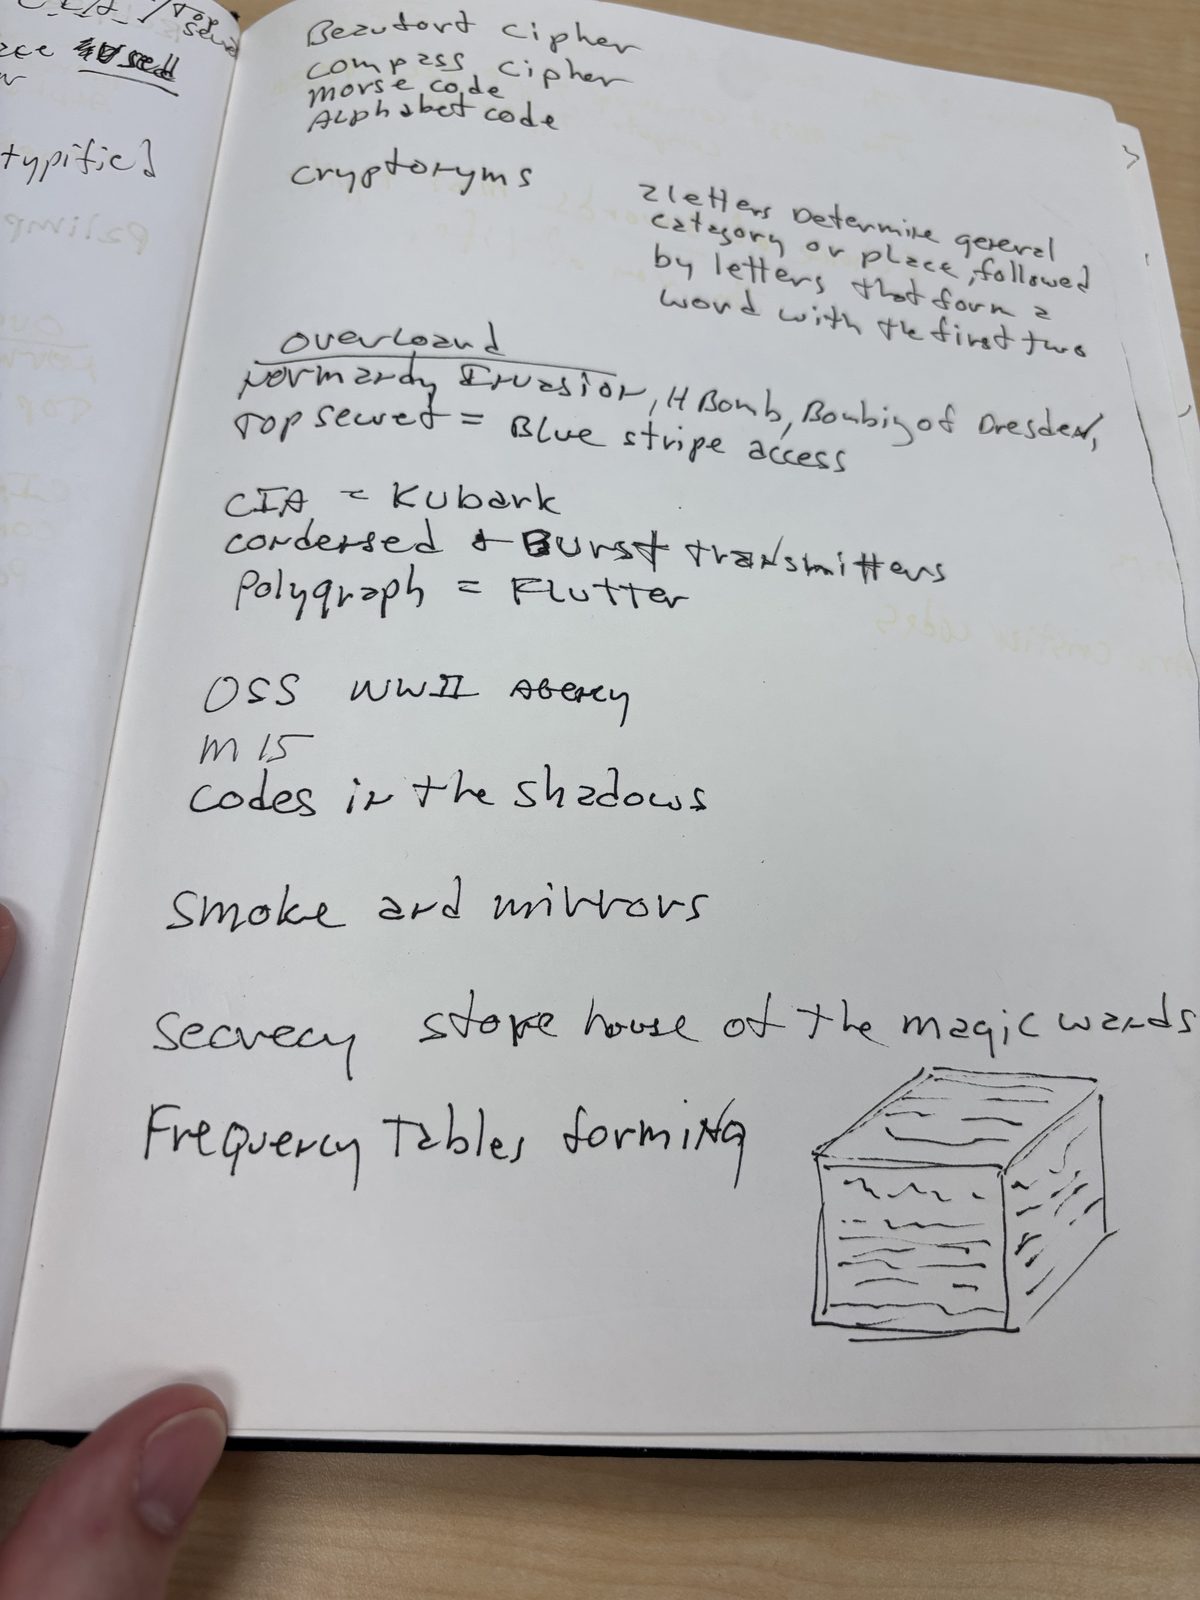 sed
typified
Beaufort cipher
compass cipher
morse code
Alphabet code
cryptonyms
2 letters Determine general
category or place, followed
by letters that form a
word with the first two
Overloand
Normandy Invasion, H Bomb, Bombing of Dresden,
Top secret = Blue stripe access
CIA = Kubark
condensed + Burst transmitters
Polygraph = Flutter
OSS WWII Agency
M 15
Codes in the shadows
Smoke and mirrors
Secrecy store house of the magic wands
Frequency Tables forming